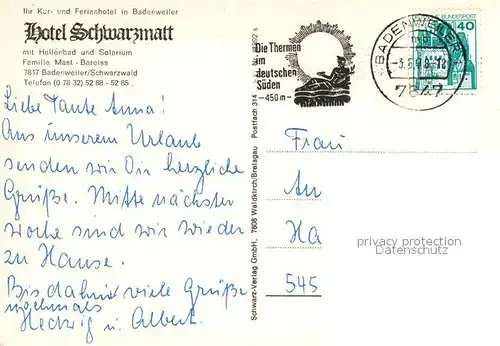 Ihr Kur- und Ferienhotel in Badenweiler
Hotel Schwarzmatt
mit Hallenbad und Solarium
Familie Mast-Bareiss
7847 Badenweiler/Schwarzwald
Telefon (0 76 32) 52 88 - 52 85
Liebe Tante Anna!
Aus unserem Urlaub
senden wir Dir herzliche
Grüße. Mitte nächster
Woche sind wir wieder
zu Hause.
Bis dahin viele Grüße
nochmals
Hedwig u. Albert.
Schwarz-Verlag GmbH. 7808 Waldkirch/Breisgau Postfach 314
Die Thermen
im
deutschen
Süden
-450m-
BADENWEILER
7847
BUNDESPOST
40
Frau
An
Ha
545
privacy protection
Datenschutz